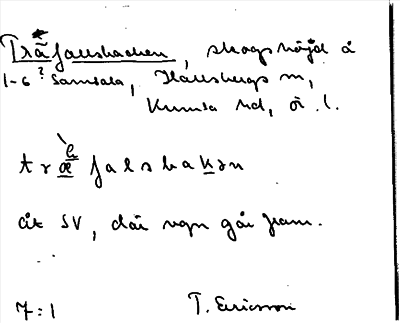 Träfallsbacken, skogshöjd å
1-6? Samsala, Hallsbergs sn,
Kumla hd, ör. l.
træfalsbakən
åt SV, där vgn går fram.
7:1 T. Ericsson